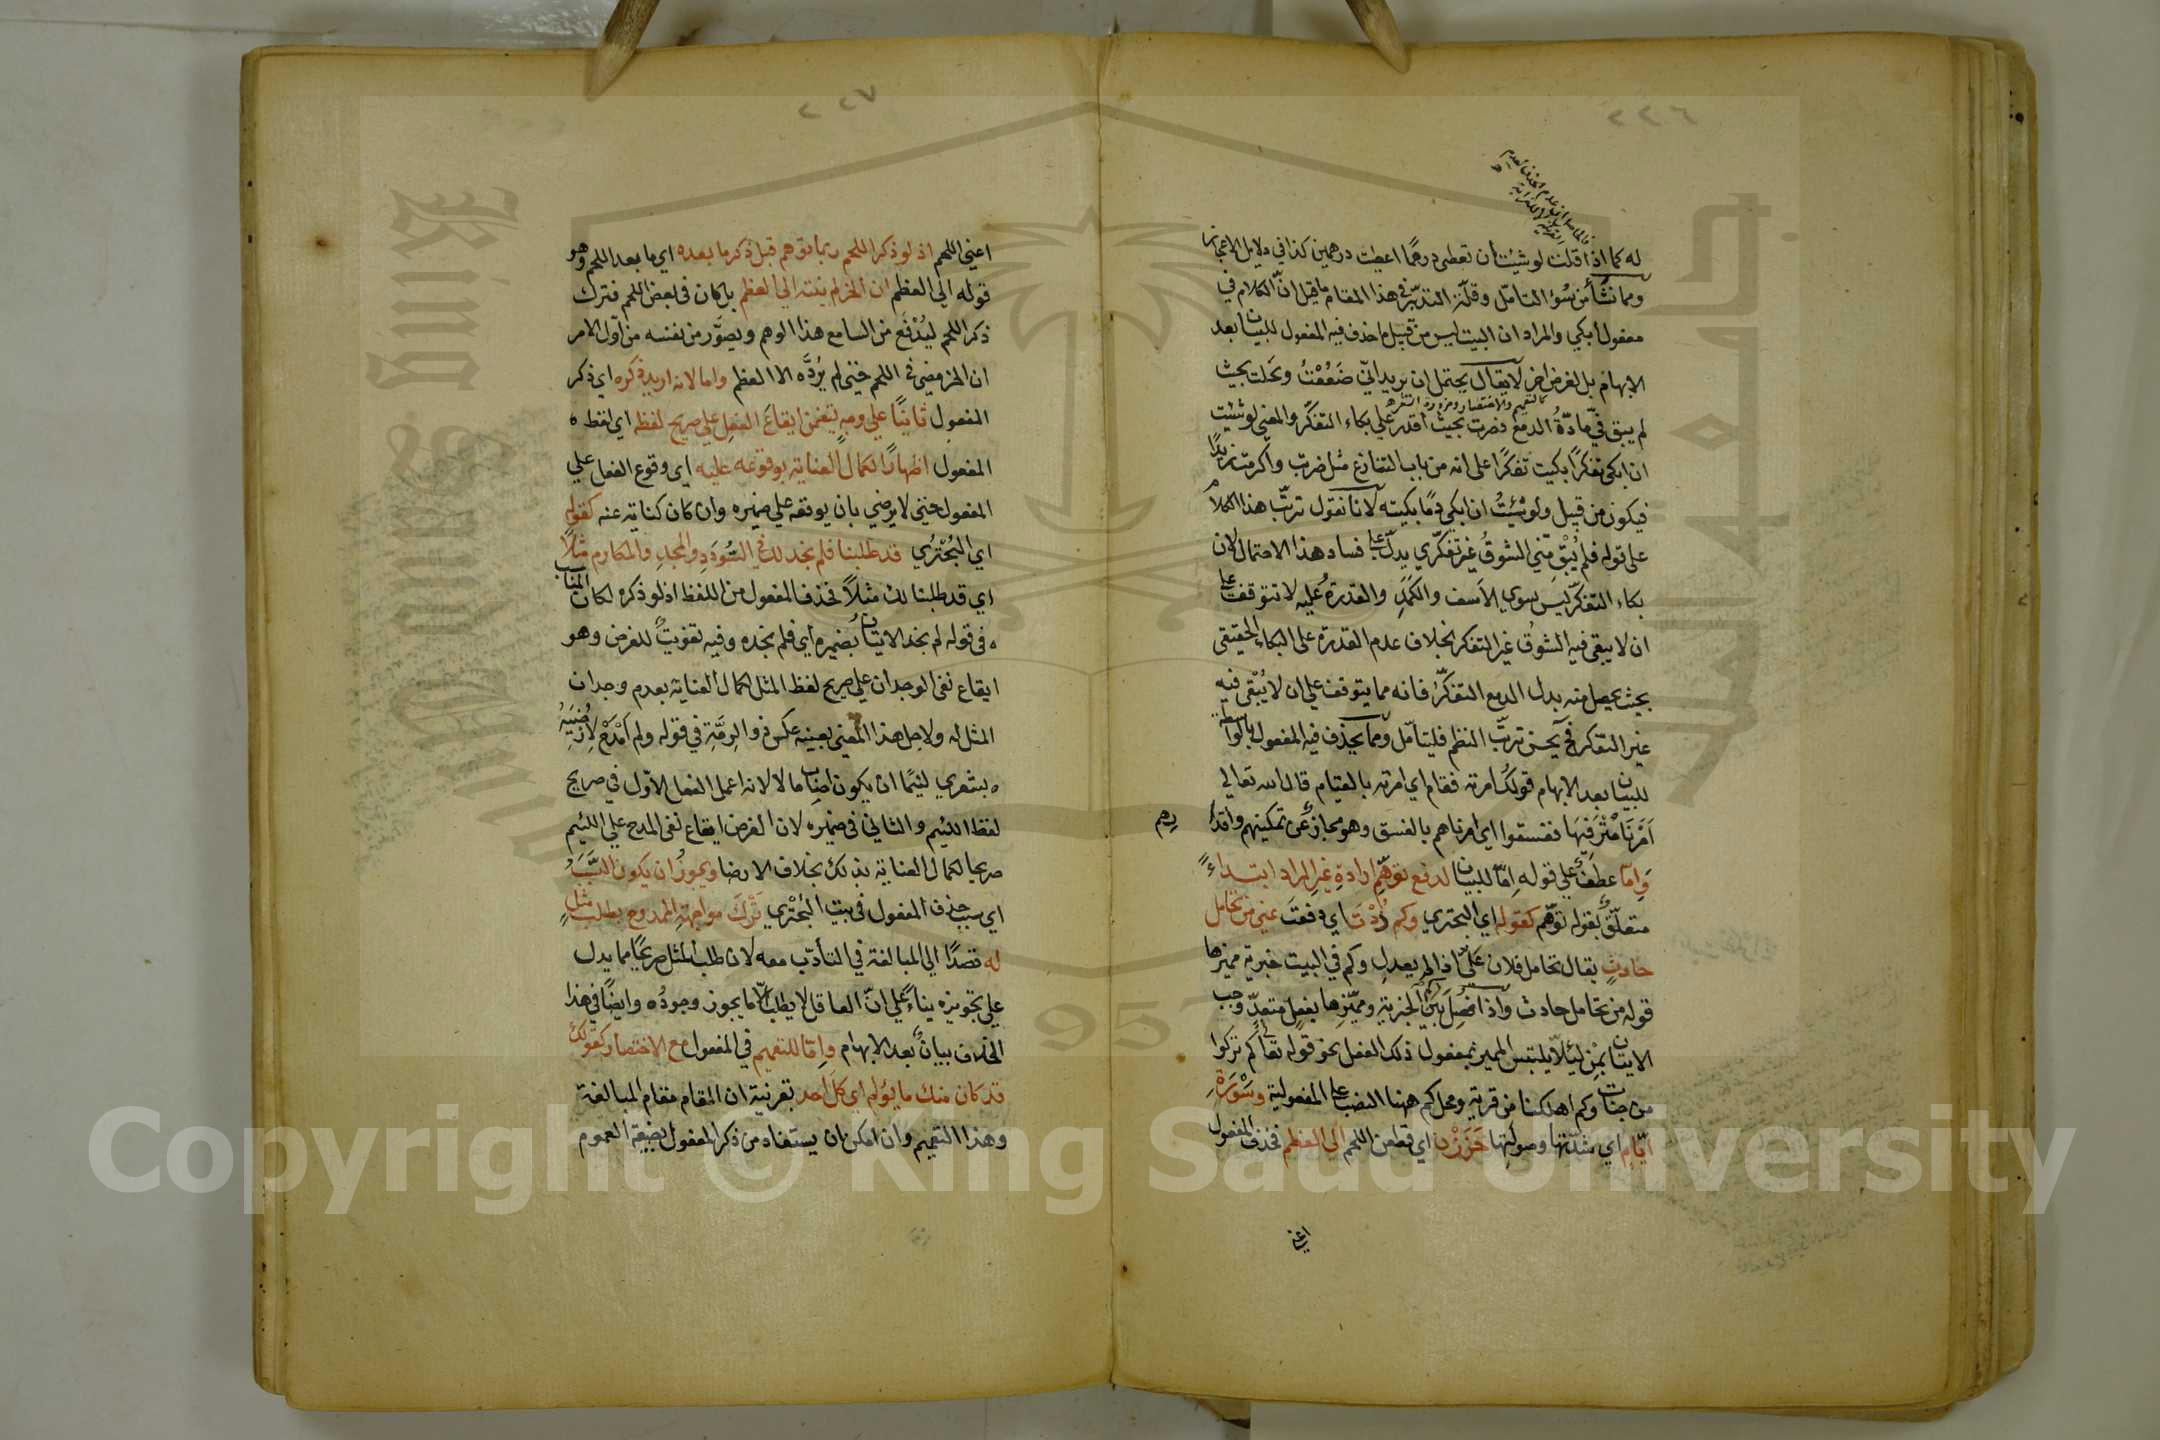 ٢٢٦
له كما اذا قلت لو شئت ان تعطى درهما اعطيت درهمين كذا في دلايل الاعجاز
ومما نشأ من سوء التأمل وقلة التدبر في هذا المقام ما قيل ان الكلام في
مفعول ابكي والمراد ان البيت ليس من قبيل ما حذف فيه المفعول للبيان بعد
الابهام بل لغرض اخر لا يقال يحتمل ان يريد اني ضعفت ونحلت بحيث
لم يبق فيّ مادّة الدمع فصرت بحيث اقدر على بكاء التفكّر والمعنى لو شئت
ان ابكى تفكرا بكيت تفكرا على انه من باب التنازع مثل ضربت واكرمت زيدا
فيكون من قبيل ولو شئت ان ابكي دما بكيته لانا نقول ترتّب هذا الكلام
على قوله فلم يُبْقِ منّي الشوقُ غير تفكّري يدلّ على فساد هذا الاحتمال لان
بكاء التفكّر ليس سوى الاسف والكمد والقدرة عليه لا تتوقف على
ان لا يبقى فيه الشوق غير التفكر بخلاف عدم القدرة على البكاء الحقيقى
بحيث يحصل منه بدل الدمع التفكّر فانه مما يتوقف على ان لا يُبْقى فيه
غير التفكر فح يحسن ترتّب النظم فليتأمل ومما يحذف فيه المفعول بالواسطة
للبيان بعد الابهام قولك امرته فقام اي امرته بالقيام قال الله تعالى
اَمَرْنَا مُتْرَفِيهَا ففسقوا اي امرناهم بالفسق وهو مجاز عن تمكينهم واقدا
رهم
وامّا عطف على قوله امّا للبيان لدفع توهّم ارادة غير المراد ابتداءً
متعلّق بقوله توهّم كقوله اي البحتري وكم ذُدْتَ اي دفعت عني من تحامل
حادث يقال تحامل فلان علىّ اذا لم يعدل وكم في البيت خبرية مميزها
قوله من تحامل حادث واذا فصل بين كم الخبرية ومميّزها بفعل متعدّ وجب
الاتيان بمن لئلّا يلتبس المميز بمفعول ذلك الفعل نحو قوله تعالى كم تركوا
من جنات وكم اهلكنا من قرية ومحل كم ههنا النصب على المفعولية وسَوْرَةِ
ايّام اي شدّتها وصولتها حَزَزْن اي قطعن اللحم الى العظم فحذف المفعول
اعني
٢٢٧
اعني اللحم اذ لو ذكر اللحم ربما توهم قبل ذكر ما بعده اي ما بعد اللحم وهو
قوله الى العظم ان الحز لم ينته الى العظم بل كان فى بعض اللحم فترك
ذكر اللحم ليُدْفَع من السامع هذا الوهم ويصوَّر من نفسه من اوّل الامر
ان الحز مضى في اللحم حتى لم يردَّه الا العظم واما لانه اريد ذكره اي ذكر
المفعول ثانيًا على وجهٍ يتضمن ايقاع الفعل على صريح لفظه اي لفظ ه
المفعول اظهارا لكمال العناية بوقوعه عليه اي وقوع الفعل على
المفعول حتى لا يرضى بان يوقعه على ضميره وان كان كناية عنه كقوله
اي البُحْتُري قد طلبنا فلم نجد لك في السُّودَدِ والمجدِ والمكارم مثلاً
اي قد طلبنا لك مثلاً فحذف المفعول من اللفظ اذ لو ذكره لكان المناسب
ه في قوله لم نجد الاتيان بضميره اي فلم نجده وفيه تفويت للغرض وهو
ايقاع نفى الوجدان على صريح لفظ المثل لكمال العناية بعدم وجدان
المثل له ولاجل هذا المعنى بعينه عكس ذو الرمّة في قوله ولم اَمْدَحْ لاُرْضِيَهُ
ه بشعري لئيمًا ان يكون اصاب مالا لانه اعمل الفعل الاوّل في صريح
لفظ اللئيم والثانى فى ضميره لان الغرض ايقاع نفى المدح على اللئيم
صريحا لكمال العناية بذلك بخلاف الارضا ويجوز ان يكون السَّبَبُ
اي سبب حذف المفعول فى بيت البُحْتري تركَ مواجهة الممدوح بطلب مثلٍ
له قصدًا الى المبالغة في التأدّب معه لان طلب المثل صريحًا مما يدل
على تجويزه بناءً على انّ العاقل لا يطلب الّا ما يجوز وجودُه وايضًا في هذا
الحذف بيان بعد الابهام وامّا للتعميم في المفعول مع الاختصار كقولك
قد كان منك ما يؤلم اي كل احد بقرينة ان المقام مقام المبالغة
وهذا التعميم وان امكن ان يستفاد من ذكر المفعول بصيغة العموم
Copyright © King Saud University